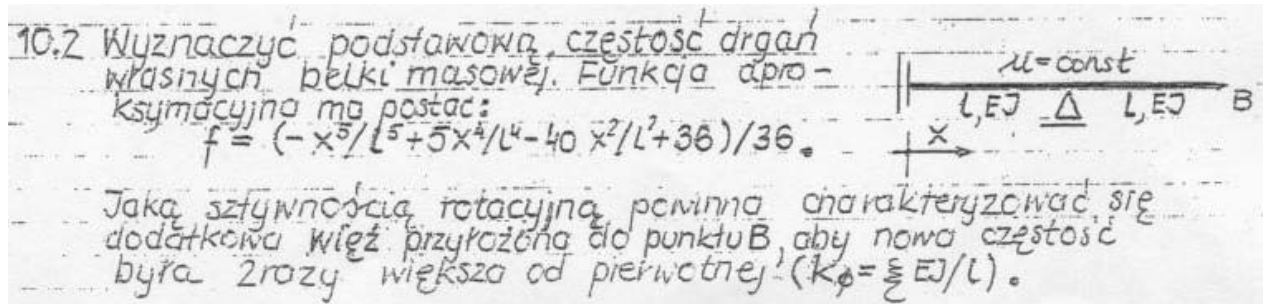 10.2 Wyznaczyć podstawową częstość drgań
własnych belki masowej. Funkcja apro-
ksymacyjna ma postać:
f = (-x⁵/l⁵+5x⁴/l⁴-40 x²/l²+36)/36.
μ=const
l,EJ Δ l,EJ B
x
Jaką sztywnością rotacyjną powinna charakteryzować się
dodatkowa więź przyłożona do punktu B, aby nowa częstość
była 2 razy większa od pierwotnej (kφ=ξ EJ/l).